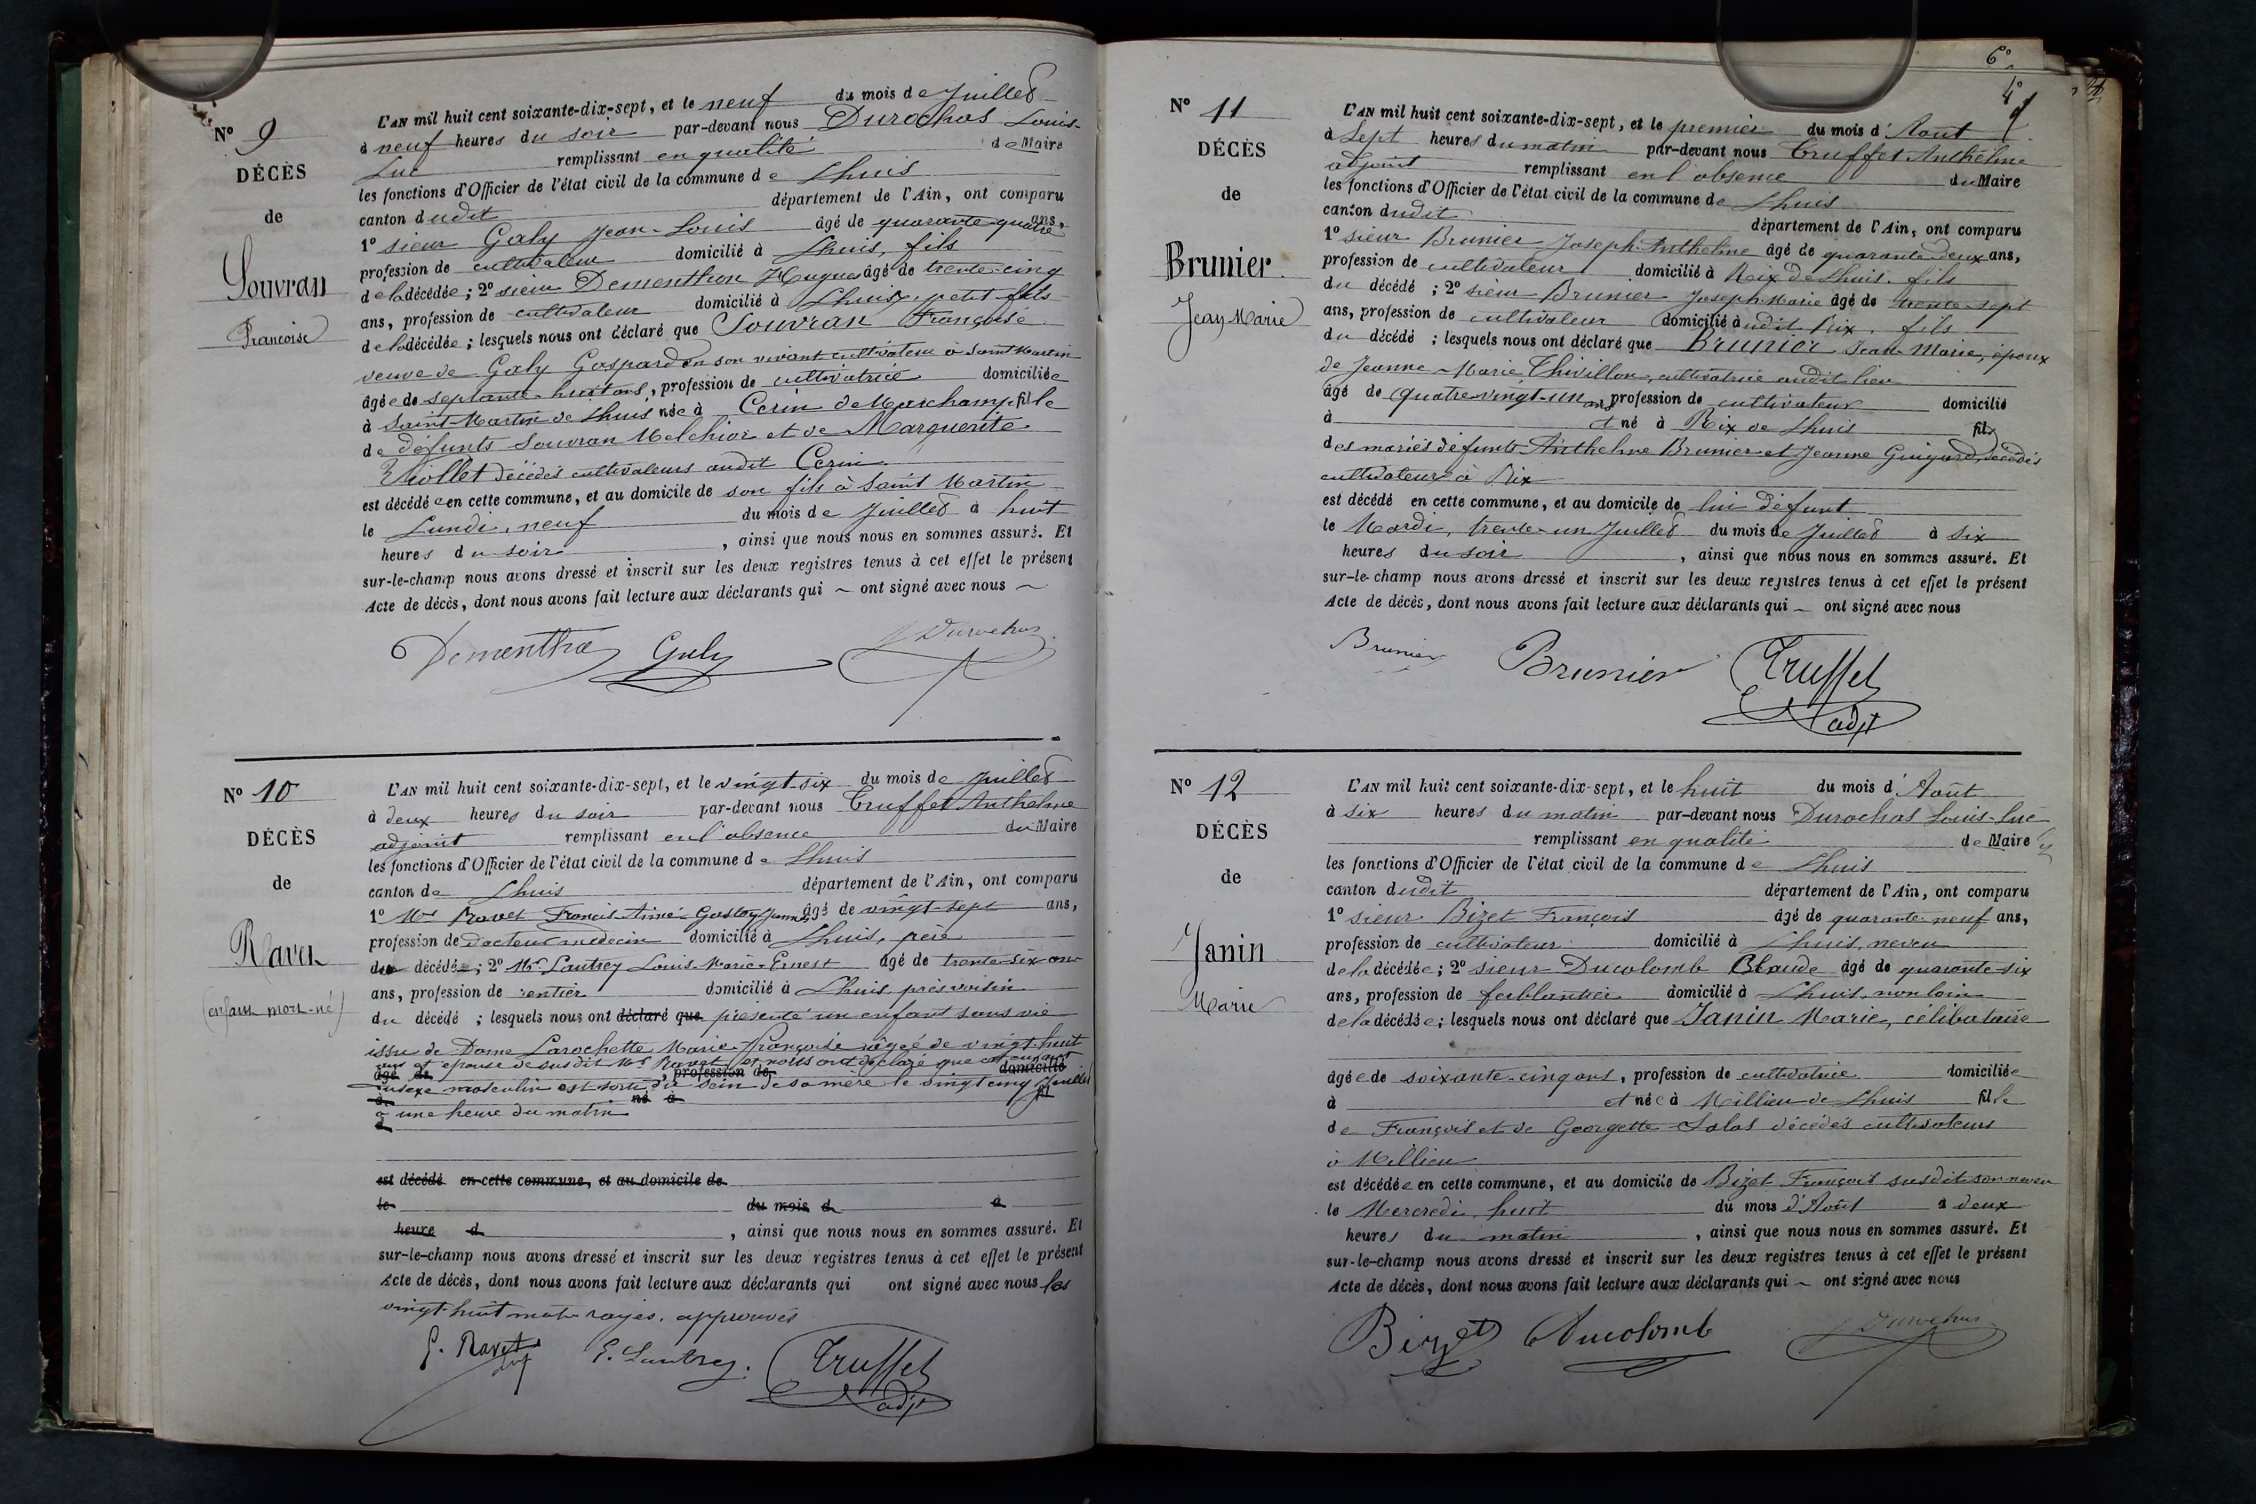 Nº 9
DÉCÈS
de
Souvran
Francoise
L'AN mil huit cent soixante-dix-sept, et le neuf du mois de Juillet
à neuf heures du soir par-devant nous Durochas Louis-
Luc remplissant en qualité de Maire
les fonctions d'Officier de l'état civil de la commune de Lhuis
canton dudit département de l'Ain, ont comparu
1º sieur Galy Jean-Louis âgé de quarante quatre ans,
profession de cultivateur domicilié à Lhuis, fils
de la décédée ; 2º sieur Dementhon Hugues âgé de trente-cinq
ans, profession de cultivateur domicilié à Lhuis, petit fils
de la décédée ; lesquels nous ont déclaré que Souvran Françoise
veuve de Galy Gaspard en son vivant cultivateur à Saint Martin
âgée de septante-huit ans, profession de cultivatrice domiciliée
à Saint-Martin de Lhuis née à Cerin de Marchamp fille
de défunts Souvran Melchior et de Marguerite
Viollet décédés cultivateurs audit Cerin
est décédée en cette commune, et au domicile de son fils à Saint Martin
le Lundi, neuf du mois de Juillet à huit
heures du soir , ainsi que nous nous en sommes assuré. Et
sur-le-champ nous avons dressé et inscrit sur les deux registres tenus à cet effet le présent
Acte de décès, dont nous avons fait lecture aux déclarants qui ~ ont signé avec nous ~
Dementho Galy Durochas
Nº 10
DÉCÈS
de
Ravet
(enfant mort-né)
L'AN mil huit cent soixante-dix-sept, et le vingt-six du mois de Juillet
à deux heures du soir par-devant nous Truffet Anthelme
adjoint remplissant en l'absence du Maire
les fonctions d'Officier de l'état civil de la commune de Lhuis
canton de Lhuis département de l'Ain, ont comparu
1º Mr Ravet Francis Aimé Gustay âgé de vingt-sept ans,
profession de docteur médecin domicilié à Lhuis, père
du décédé ; 2º Mr Lautrey Louis-Marie-Ernest âgé de trente-six ans
ans, profession de rentier domicilié à Lhuis près voisin
du décédé ; lesquels nous ont déclaré que présenté un enfant sans vie
issu de Dame Larochette Marie-Françoise âgée de vingt-huit
ans et épouse de susdit Mr Ravet, et nous ont déclaré que cet enfant
âgé de , profession de domicilié
du sexe masculin est sorti du sein de sa mère le vingt cinq Juillet
à né à fil
à une heure du matin
d
est décédé en cette commune, et au domicile de
le du mois d à
heure d , ainsi que nous nous en sommes assuré. Et
sur-le-champ nous avons dressé et inscrit sur les deux registres tenus à cet effet le présent
Acte de décès, dont nous avons fait lecture aux déclarants qui ont signé avec nous les
vingt-huit mots rayés, approuvés
Ravet E. Lautrey. Truffet
adjt
6º
4º
Nº 11
DÉCÈS
de
Brunier
Jean-Marie
L'AN mil huit cent soixante-dix-sept, et le premier du mois d'Aout
à Sept heures du matin par-devant nous Truffet Anthelme
adjoint remplissant en l'absence du Maire
les fonctions d'Officier de l'état civil de la commune de Lhuis
canton dudit département de l'Ain, ont comparu
1º sieur Brunier Joseph-Anthelme âgé de quarante-deux ans,
profession de cultivateur domicilié à Rix de Lhuis, fils
du décédé ; 2º sieur Brunier Joseph Marie âgé de trente-sept
ans, profession de cultivateur domicilié audit Rix, fils
du décédé ; lesquels nous ont déclaré que Brunier Jean-Marie, époux
de Jeanne-Marie Thivillon, cultivatrice audit lieu
âgé de quatre vingt-un ans profession de cultivateur domicilié
à et né à Rix de Lhuis fils
des mariés défunts Anthelme Brunier et Jeanne Guigard, décédés
cultivateurs à Rix
est décédé en cette commune, et au domicile de lui défunt
le Mardi, trente-un Juillet du mois de Juillet à six
heures du soir , ainsi que nous nous en sommes assuré. Et
sur-le-champ nous avons dressé et inscrit sur les deux registres tenus à cet effet le présent
Acte de décès, dont nous avons fait lecture aux déclarants qui ~ ont signé avec nous
Brunier Brunier Truffet
adjt
Nº 12
DÉCÈS
de
Janin
Marie
L'AN mil huit cent soixante-dix-sept, et le huit du mois d'Août
à six heures du matin par-devant nous Durochas Louis-Luc
remplissant en qualité de Maire
les fonctions d'Officier de l'état civil de la commune de Lhuis
canton dudit département de l'Ain, ont comparu
1º sieur Bizet François âgé de quarante-neuf ans,
profession de cultivateur domicilié à Lhuis, neveu
de la décédée ; 2º sieur Ducolomb Claude âgé de quarante-six
ans, profession de ferblantier domicilié à Lhuis, non loin
de la décédée ; lesquels nous ont déclaré que Janin Marie, célibataire
âgée de soixante-cinq ans, profession de cultivatrice domiciliée
à et née à Millieu de Lhuis fille
de François et de Georgette Salas décédés cultivateurs
à Millieu
est décédée en cette commune, et au domicile de Bizet François susdit son neveu
le Mercredi huit du mois d'Août à deux
heures du matin , ainsi que nous nous en sommes assuré. Et
sur-le-champ nous avons dressé et inscrit sur les deux registres tenus à cet effet le présent
Acte de décès, dont nous avons fait lecture aux déclarants qui ~ ont signé avec nous
Bizet Ducolomb Durochas